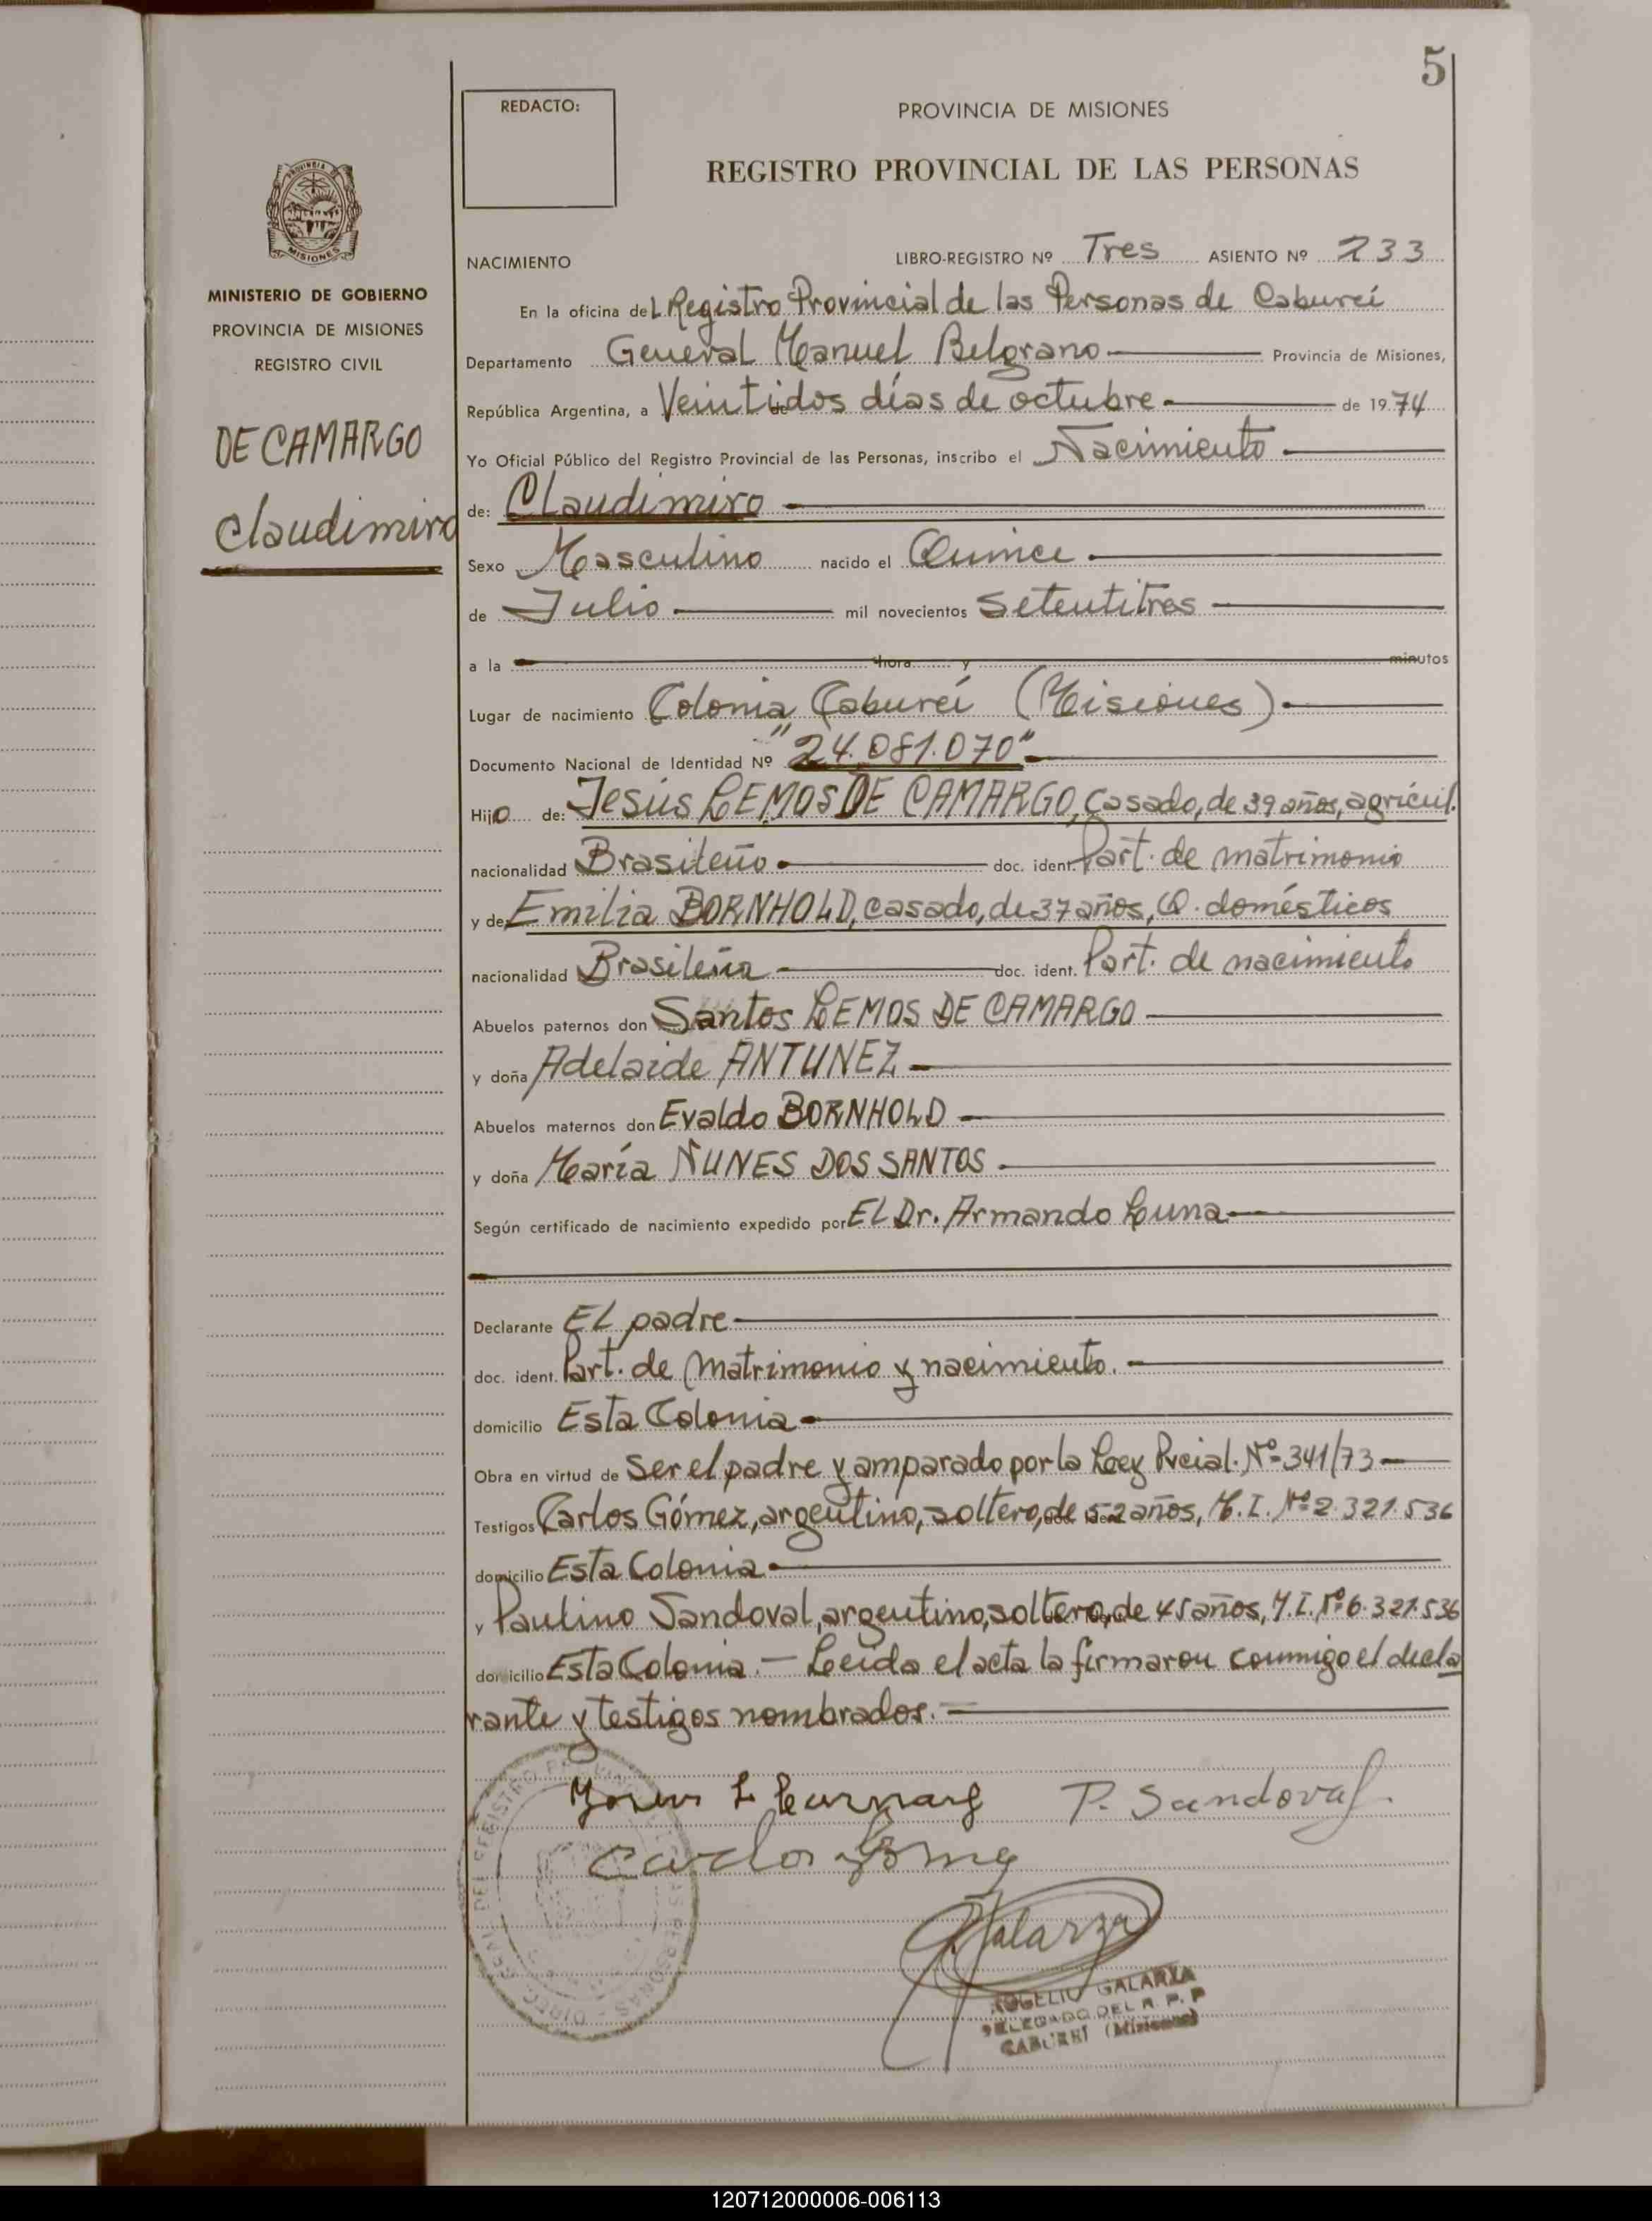 5
REDACTO:
PROVINCIA DE MISIONES
REGISTRO PROVINCIAL DE LAS PERSONAS
PROVINCIA DE
MISIONES
MINISTERIO DE GOBIERNO
PROVINCIA DE MISIONES
REGISTRO CIVIL
DE CAMARGO
Claudimiro
NACIMIENTO LIBRO-REGISTRO Nº Tres ASIENTO Nº 233
En la oficina del Registro Provincial de las Personas de Cabureí
Departamento General Manuel Belgrano Provincia de Misiones,
República Argentina, a Veintidos días de octubre de 1974
Yo Oficial Público del Registro Provincial de las Personas, inscribo el Nacimiento
de: Claudimiro
Sexo Masculino nacido el Quince
de Julio mil novecientos Setentitres
a la hora y minutos
Lugar de nacimiento Colonia Cabureí (Misiones)
Documento Nacional de Identidad Nº "24.081.070"
Hijo de: Jesús LEMOS DE CAMARGO, casado, de 39 años, agricul.
nacionalidad Brasileño doc. ident. Part. de matrimonio
y de: Emilia BORNHOLD, casado, de 37 años, Q. domésticos
nacionalidad Brasileña doc. ident. Part. de nacimiento
Abuelos paternos don Santos LEMOS DE CAMARGO
y doña Adelaide ANTUNEZ
Abuelos maternos don Evaldo BORNHOLD
y doña María NUNES DOS SANTOS
Según certificado de nacimiento expedido por El Dr. Armando Luna
Declarante El padre
doc. ident. Part. de Matrimonio y nacimiento.
domicilio Esta Colonia
Obra en virtud de Ser el padre y amparado por la Ley Pvcial. Nº 341/73
Testigos Carlos Gómez, argentino, soltero, de 52 años, M.I. Nº 2.321.536
domicilio Esta Colonia
y Paulino Sandoval, argentino, soltero, de 45 años, M.I. Nº 6.321.536
domicilio Esta Colonia. — Leida el acta la firmaron conmigo el decla
rante y testigos nombrados.
P. Sandoval
Galarza
ROGELIO GALARZA
DELEGADO DEL R. P. P
CABUREI (Misiones)
120712000006-006113